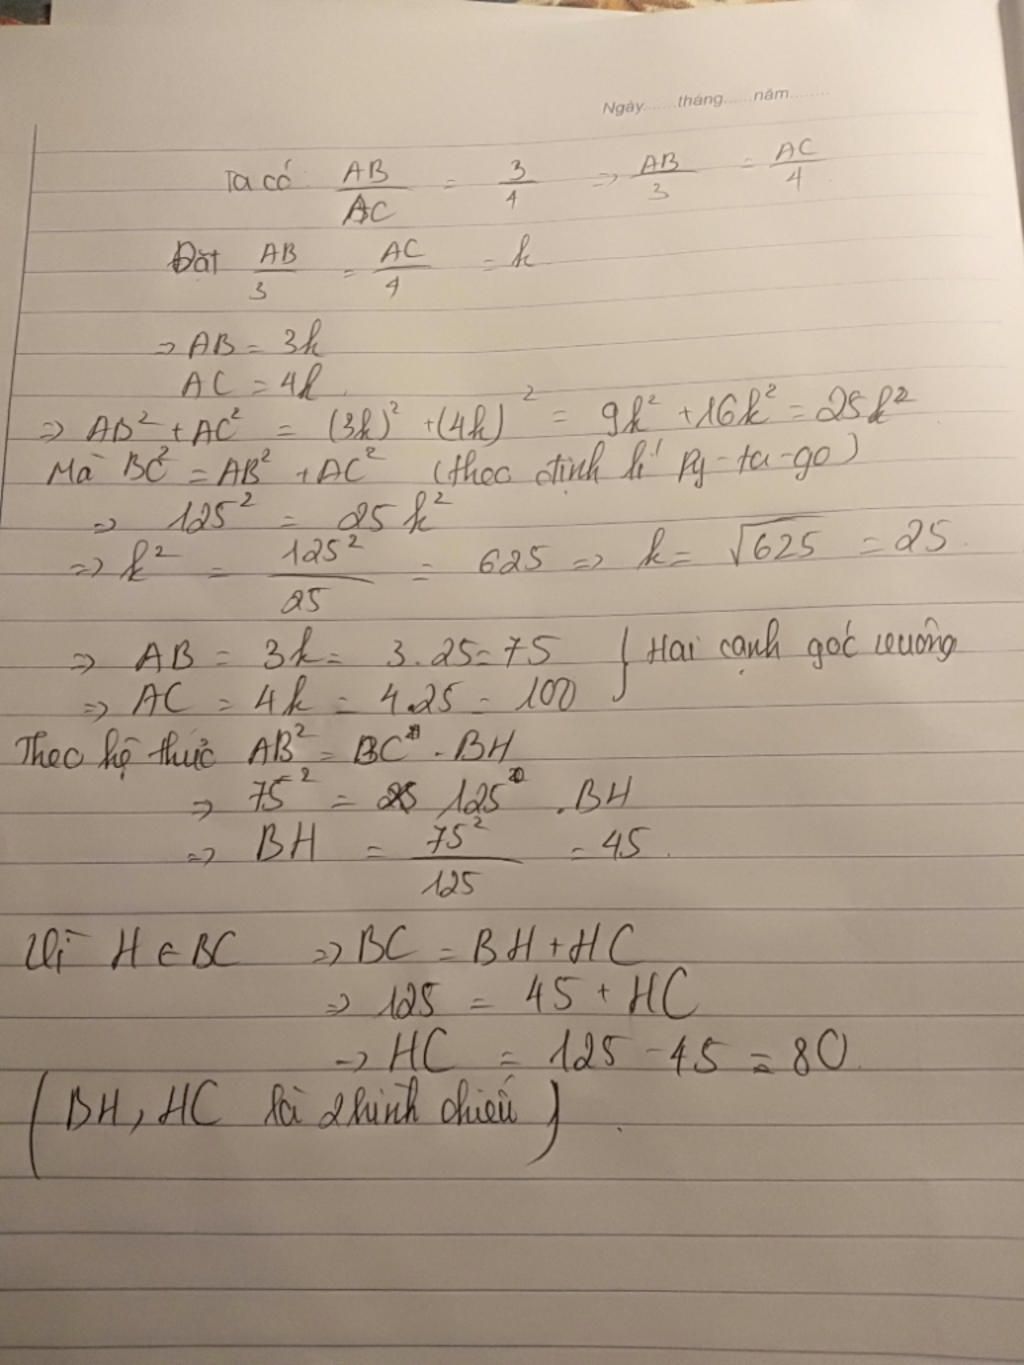 Ngày.......tháng......năm.........
Ta có: AB/AC = 3/4 => AB/3 = AC/4
Đặt AB/3 = AC/4 = k
=> AB = 3k
AC = 4k.
=> AB² + AC² = (3k)² + (4k)² = 9k² + 16k² = 25k²
Mà BC² = AB² + AC² (theo định lí Py-ta-go)
=> 125² = 25k²
=> k² = 125²/25 = 625 => k = √625 = 25.
=> AB = 3k = 3.25 = 75 } Hai cạnh góc vuông
=> AC = 4k = 4.25 = 100
Theo hệ thức AB² = BC . BH
=> 75² = 125 . BH
=> BH = 75²/125 = 45.
Vì H ∈ BC => BC = BH + HC
=> 125 = 45 + HC
-> HC = 125 - 45 = 80.
(BH, HC là 2 hình chiếu).